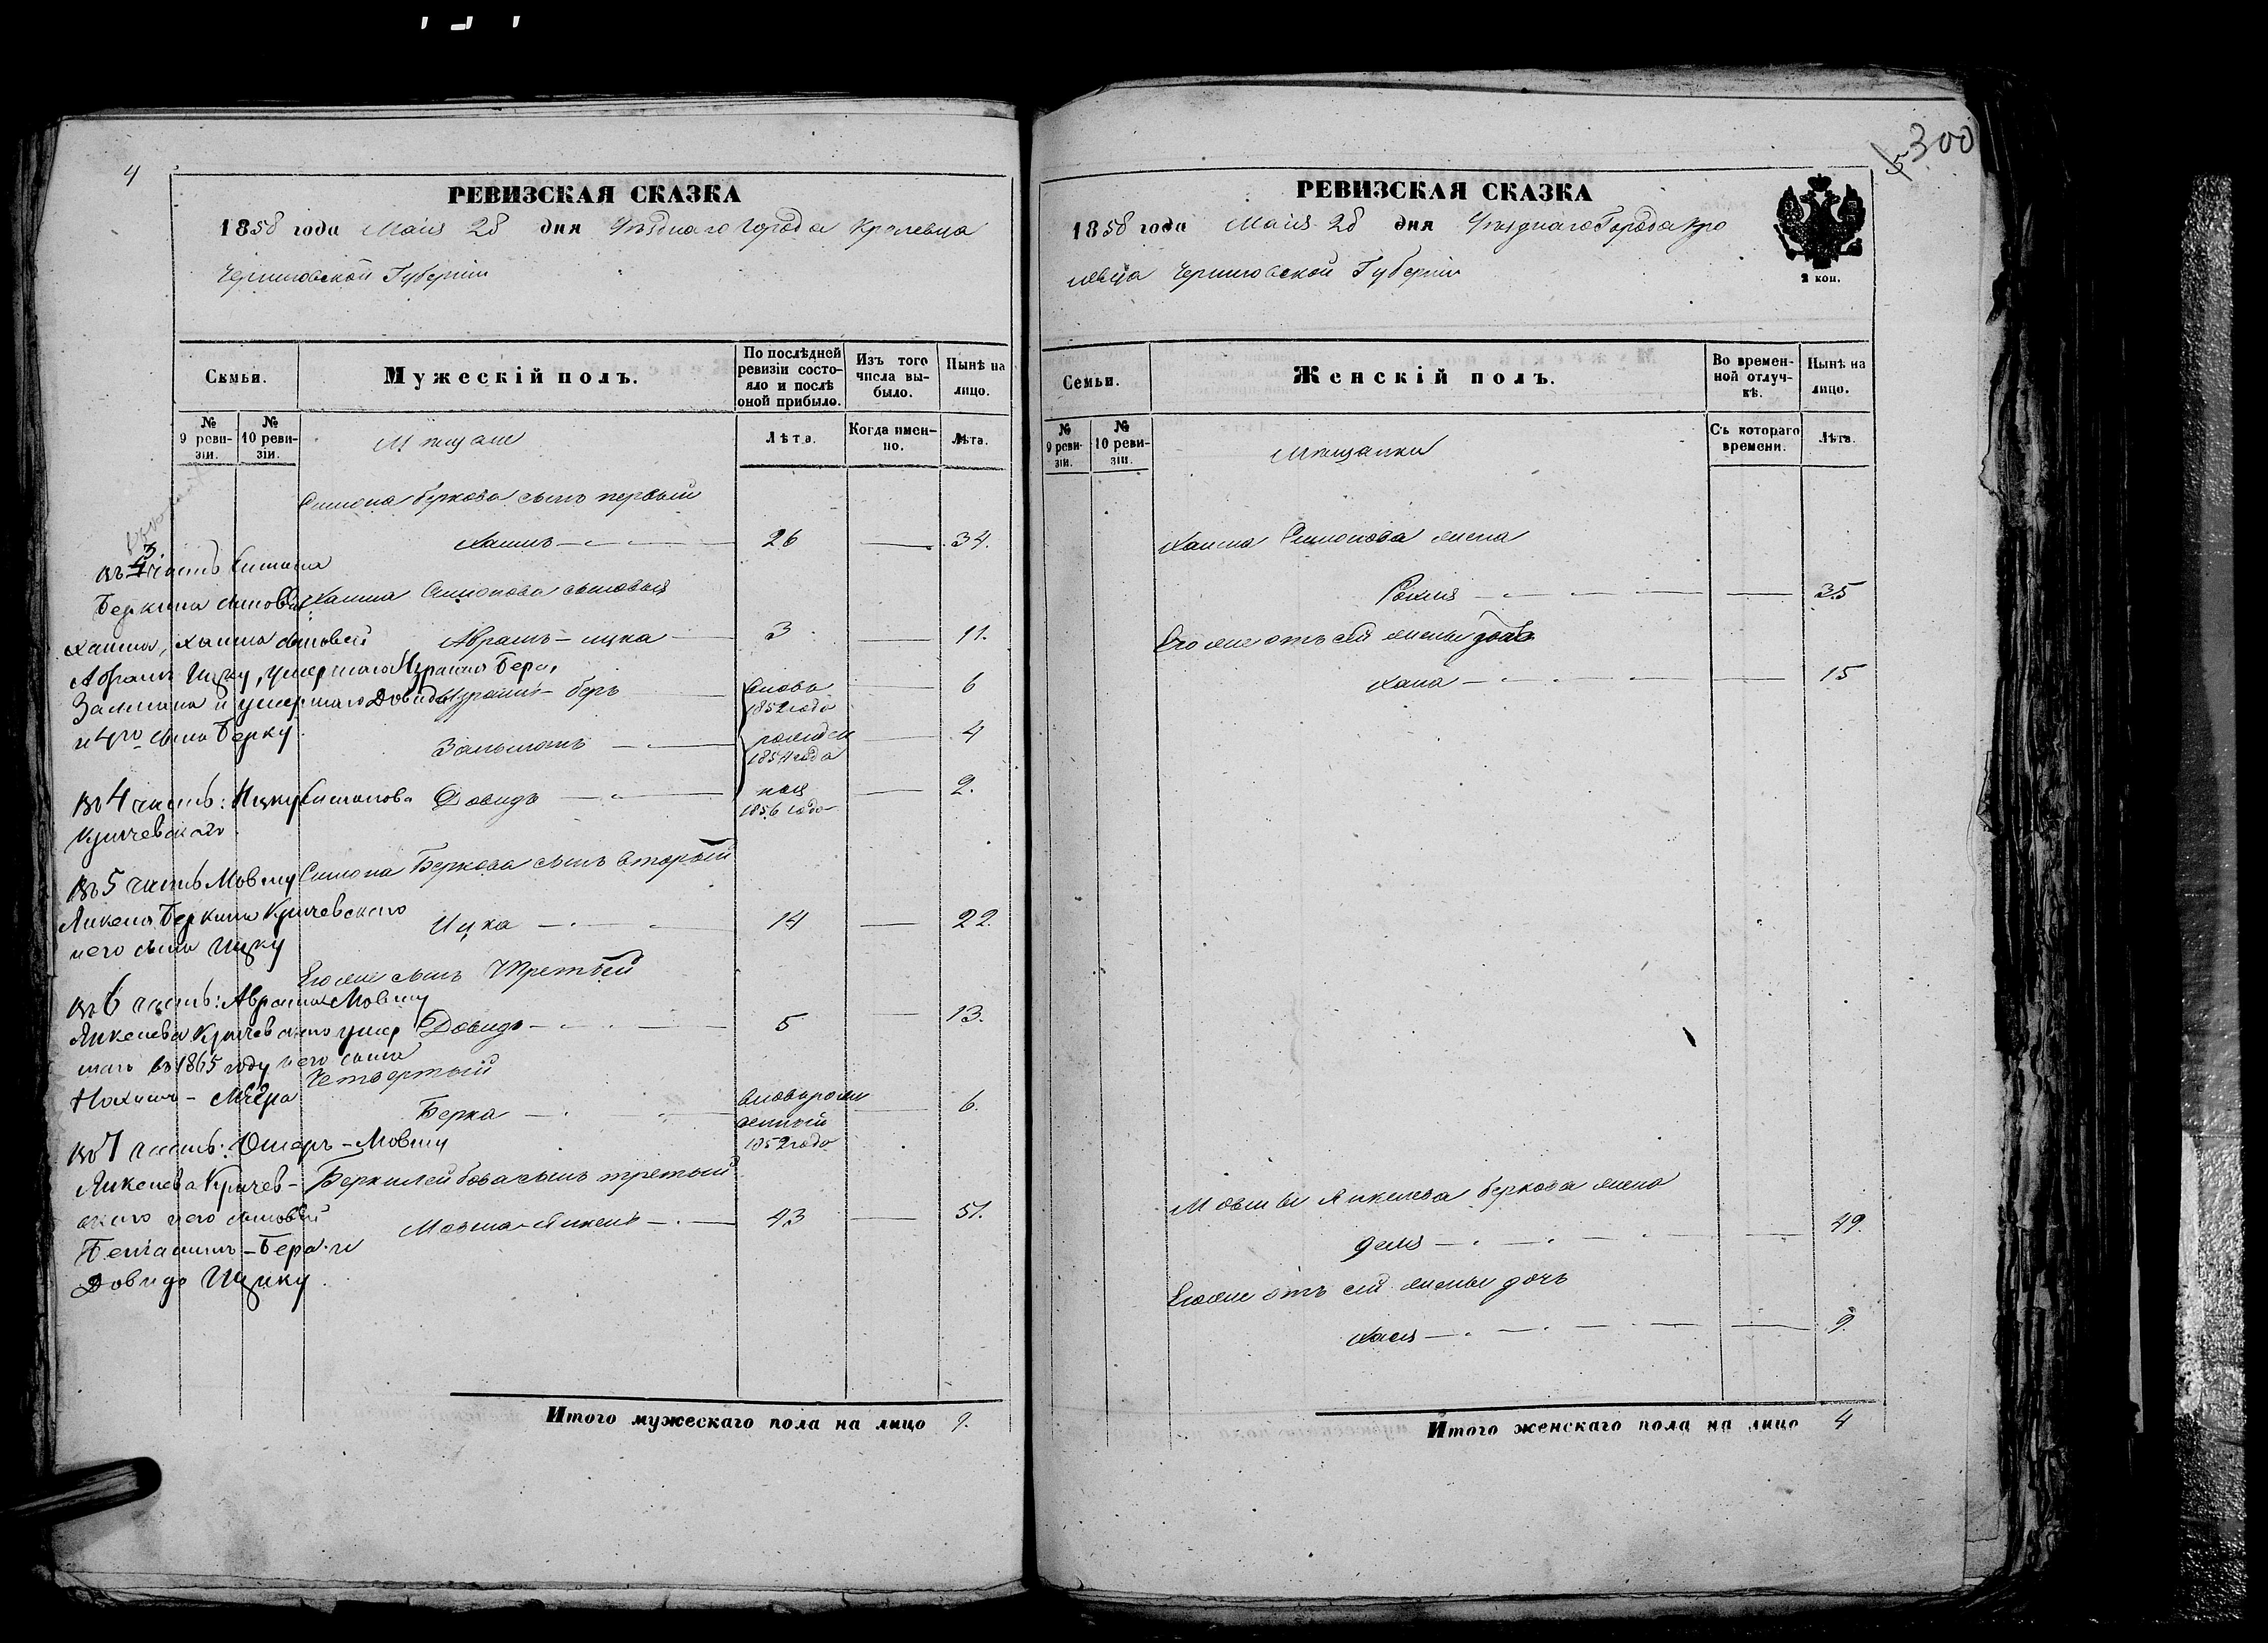 4
РЕВИЗСКАЯ СКАЗКА
1858 года Маія 28 дня Уѣзднаго города Кролевца
Черниговской Губерніи
Семьи.
Мужескій полъ.
По послѣдней ревизіи состояло и послѣ оной прибыло.
Изъ того числа выбыло.
Нынѣ на лицо.
№ 9 ревизіи.
№ 10 ревизіи.
Мѣщане
Лѣта.
Когда именно.
Лѣта.
Симона Беркова сынъ первый
Хаимъ 26 34.
Хаима Симонова сыновья
Аврамъ-ицка 3 11.
Израиль-беръ вновь 1852 года 6
Зальманъ рожден 1854 года 4
Довидъ ные 1856 года 2.
Симона Беркова сынъ вторый
Ицка 14 22.
Его же сынъ Третьей
Довидъ 5 13.
Четвертый
Берка вноворож 6.
денный
1852 года
Берки Лейбова сынъ третый
Мовша-Янкель 43 51.
Итого мужескаго пола на лицо 9.
въ 3 часть Симона
Беркина сыновей
Хаима, Хаима сыновей
Аврамъ Ицку, умершаго Израиль Бера,
Залмана и умершаго Довида
и 4го сына Берку
въ 4 часть: Ицку Симонова
Кричевскаго
въ 5 часть Мовшу
Янкеля Беркина Кричевскаго
и его сына Ицку
въ 6 часть: Аврама Мовшу
Янкелева Кричевскаго умер
шаго въ 1865 году и его сына
Нохимъ-Меера
въ 7 часть: Ошеръ-Мовшу
Янкелева Кричев-
скаго и его сыновей
Беніаминъ-Бера и
Довида Ицку.
300
РЕВИЗСКАЯ СКАЗКА
1858 года Маія 28 дня Уѣзднаго Города Кро
левца Черниговской Губерніи
2 коп.
Семьи.
Женскій полъ.
Во временной отлучкѣ.
Нынѣ на лицо.
№ 9 ревизіи.
№ 10 ревизіи.
Мѣщанки
Съ котораго времени.
Лѣта.
Хаима Симонова жена
Рохля 35
Его же отъ сей жены дочь
Хана 15
Мовши Янкелева Беркова жена
Двля 49.
Его же отъ сей жены дочь
Хася 9.
Итого женскаго пола на лицо 4